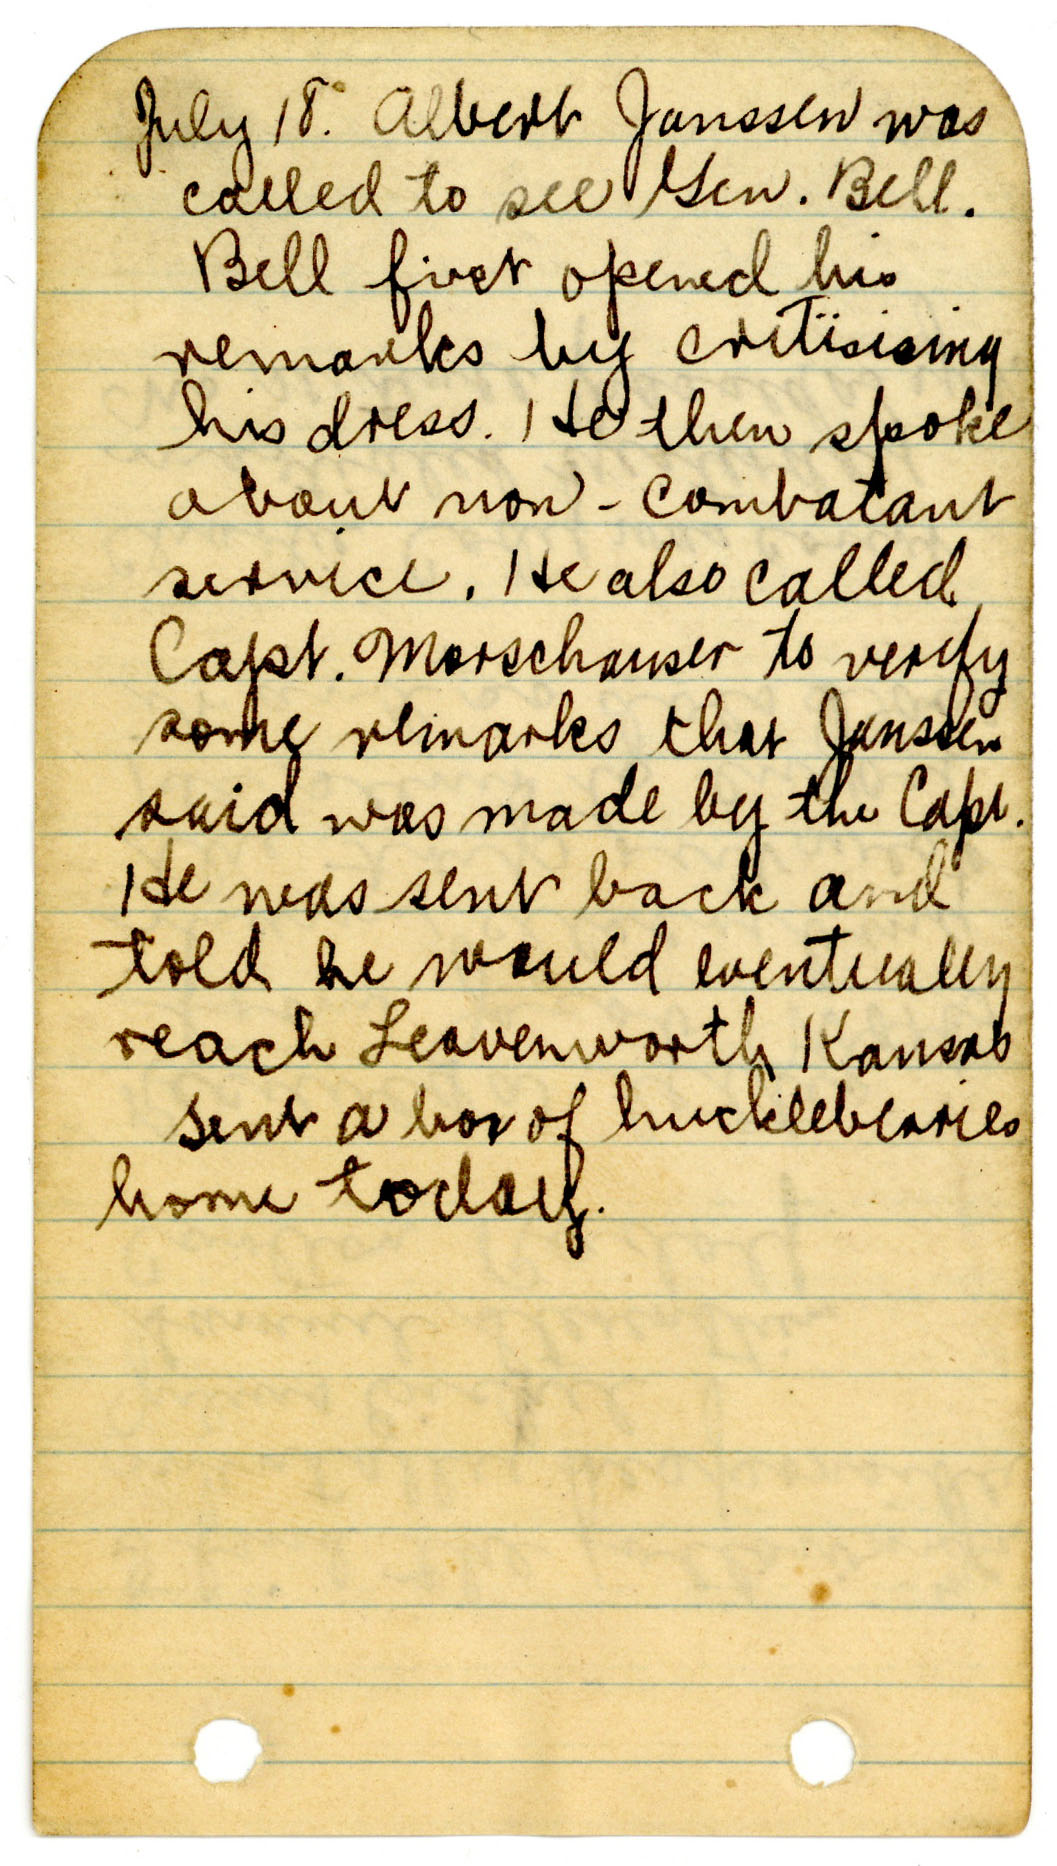 July 18. Albert Janssen was
called to see Gen. Bell.
Bell first opened his
remarks by critisising
his dress. He then spoke
about non-combatant
service. He also called
Capt. Morschauser to verify
some remarks that Janssen
said was made by the Capt.
He was sent back and
told he would eventually
reach Leavenworth Kansas
sent a box of huckleberries
home today.